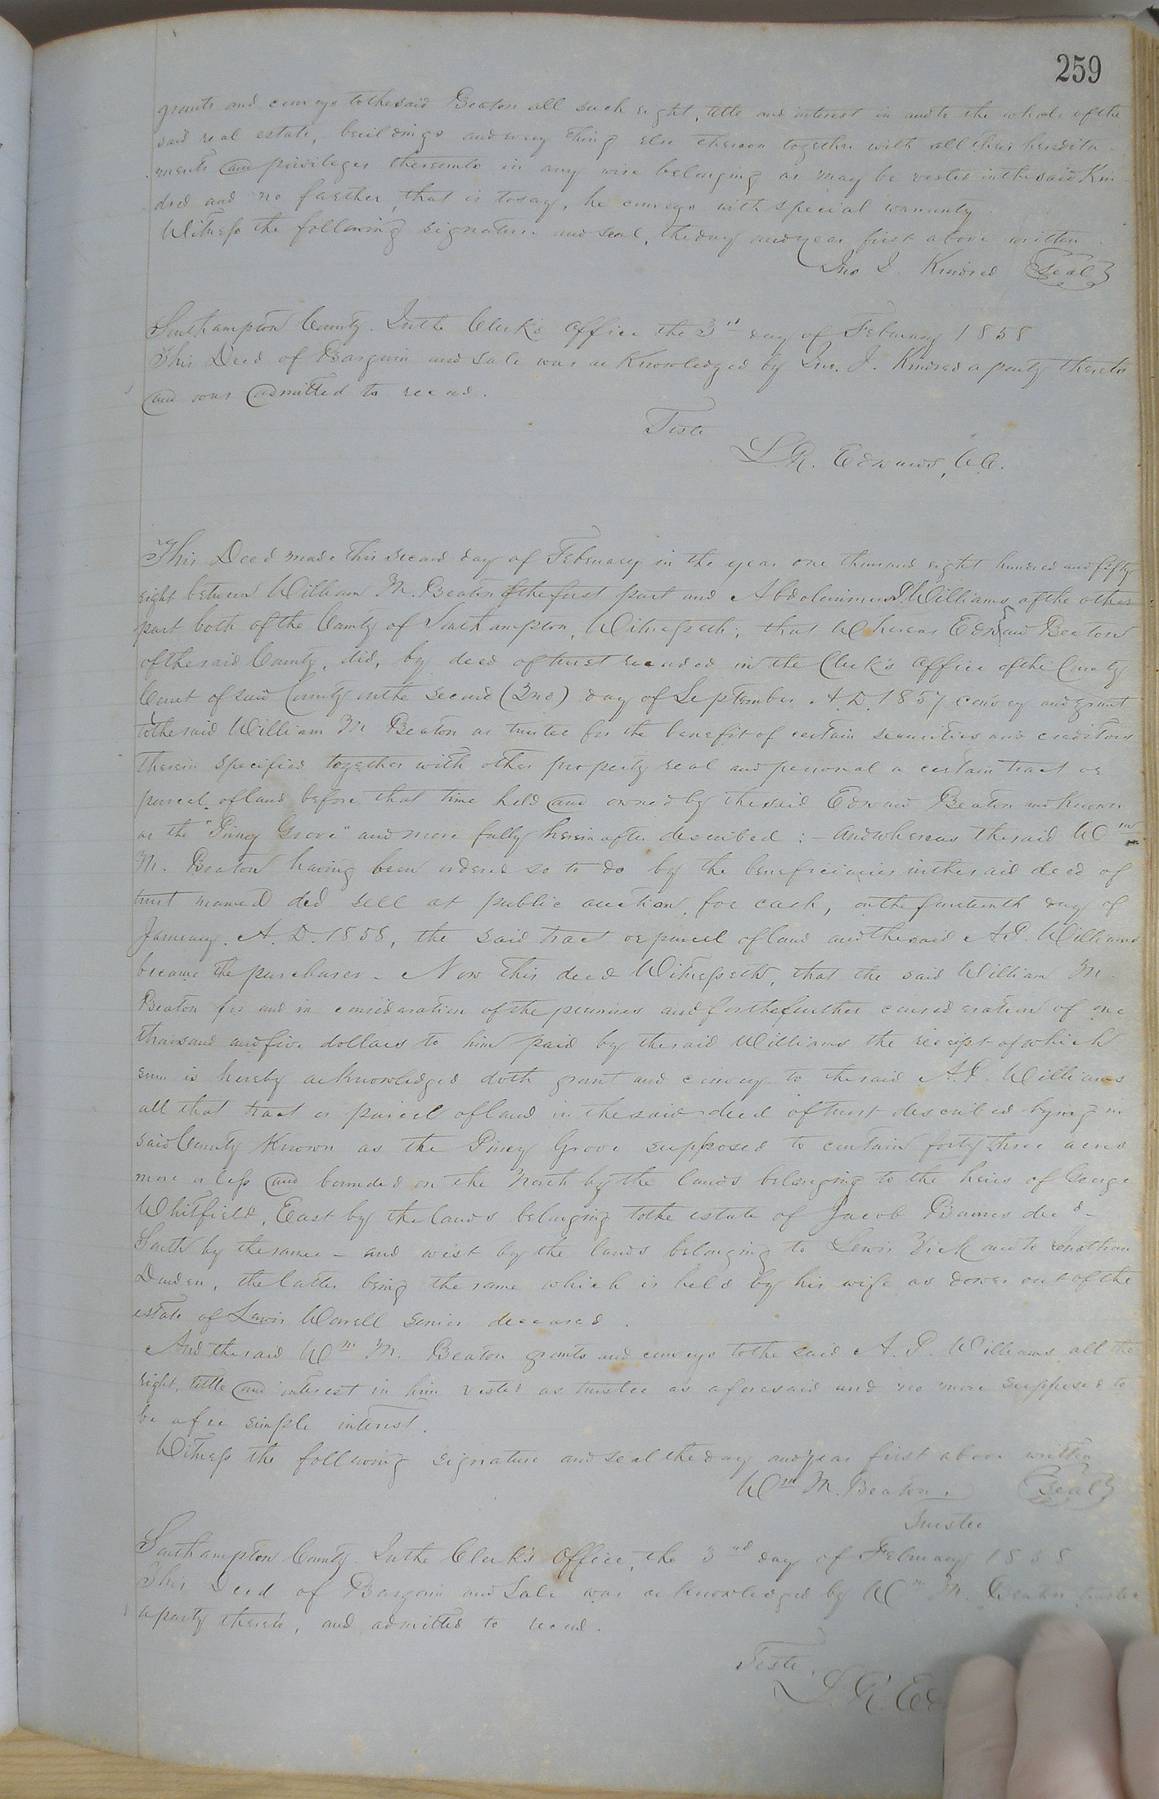 259
grants and conveys to the said Beaton all such right, title and interest in and to the whole of the
said real estate, buildings and every thing else thereon together with all their heredita-
ments and privileges thereunto in any wise belonging as may be vested in the said Kin-
dred and no farther, that is to say, he conveys with special warranty.
Witness the following signature and seal, the day and year first above written.
Jno J. Kindred (Seal)
Southampton County. In the Clerk's Office the 3rd day of February 1858
This Deed of Bargain and Sale was acknowledged by Jno. J. Kindred a party thereto
and was admitted to record.
Teste
L. R. Edwards, CC.
This Deed made this second day of February in the year one thousand eight hundred and fifty
eight between William M. Beaton of the first part and Abdolonimus P. Williams of the other
part both of the County of Southampton, Witnesseth; that Whereas Edward Beaton
of the said County, did, by deed of trust recorded in the Clerk's Office of the County
Court of said County on the second (2nd) day of September A.D. 1857 convey and grant
to the said William M Beaton as trustee for the benefit of certain securities and creditors
therein specified together with other property real and personal a certain tract or
parcel of land before that time held and owned by the said Edward Beaton and known
as the "Piney Grove" and more fully herein after described :- and whereas the said Wm
M. Beaton having been ordered so to do by the beneficiaries in the said deed of
trust named did sell at public auction, for cash, on the fourteenth day of
January. A.D. 1858, the said tract or parcel of land and the said A.P. Williams
became the purchaser - Now this deed Witnesseth, that the said William M.
Beaton for and in consideration of the premises and for the further consideration of one
thousand and five dollars to him paid by the said Williams the receipt of which
sum is hereby acknowledged doth grant and convey to the said A.P. Williams
all that tract or parcel of land in the said deed of trust described lying in
said County known as the Piney Grove supposed to contain forty three acres
more or less and bounded on the North by the lands belonging to the heirs of George
Whitfield, East by the lands belonging to the estate of Jacob Barnes decd -
South by the same - and west by the lands belonging to Lewis Dick and to Jonathan
Darden, the latter being the same which is held by his wife as dower out of the
estate of Lewis Worrell senior deceased.
And the said Wm M. Beaton grants and conveys to the said A.P. Williams all the
right, title and interest in him vested as trustee as aforesaid and no more supposed to
be a fee simple interest.
Witness the following signature and seal the day and year first above written
Wm M. Beaton. (Seal)
Trustee
Southampton County. In the Clerk's Office, the 3rd day of February 1858
This Deed of Bargain and Sale was acknowledged by Wm M. Beaton trustee
a party thereto, and admitted to record.
Teste,
L. R. Ed